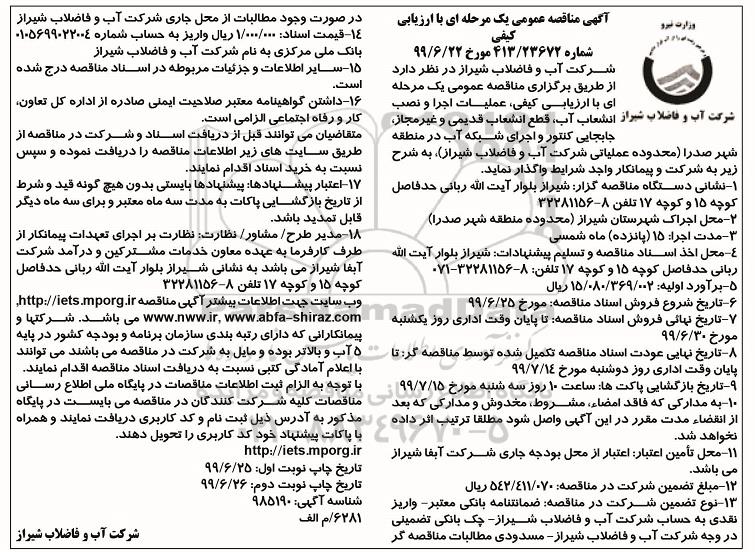 وزارت نیرو
شرکت آب و فاضلاب شیراز
آگهی مناقصه عمومی یک مرحله ای با ارزیابی
کیفی
شماره ۴۱۳/۲۳۶۷۲ مورخ ۹۹/۶/۲۲
شرکت آب و فاضلاب شیراز در نظر دارد
از طریق برگزاری مناقصه عمومی یک مرحله
ای با ارزیابی کیفی، عملیات اجرا و نصب
انشعاب آب، قطع انشعاب قدیمی و غیرمجاز،
جابجایی کنتور و اجرای شبکه آب در منطقه
شهر صدرا (محدوده عملیاتی شرکت آب و فاضلاب شیراز)، به شرح
زیر به شرکت و پیمانکار واجد شرایط واگذار نماید.
۱-نشانی دستگاه مناقصه گزار: شیراز بلوار آیت الله ربانی حدفاصل
کوچه ۱۵ و کوچه ۱۷ تلفن ۸-۳۲۲۸۱۱۵۶
۲-محل اجراک شهرستان شیراز (محدوده منطقه شهر صدرا)
۳-مدت اجرا: ۱۵ (پانزده) ماه شمسی
۴-محل اخذ اسناد مناقصه و تسلیم پیشنهادات: شیراز بلوار آیت الله
ربانی حدفاصل کوچه ۱۵ و کوچه ۱۷ تلفن: ۸-۳۲۲۸۱۱۵۶-۰۷۱
۵-برآورد اولیه: ۱۵/۰۸۰/۳۶۹/۰۰۲ ریال
۶-تاریخ شروع فروش اسناد مناقصه: مورخ ۹۹/۶/۲۵
۷-تاریخ نهائی فروش اسناد مناقصه: تا پایان وقت اداری روز یکشنبه
مورخ ۹۹/۶/۳۰
۸-تاریخ نهایی عودت اسناد مناقصه تکمیل شده توسط مناقصه گر: تا
پایان وقت اداری روز دوشنبه مورخ ۹۹/۷/۱۴
۹-تاریخ بازگشایی پاکت ها: ساعت ۱۰ روز سه شنبه مورخ ۹۹/۷/۱۵
۱۰-به مدارکی که فاقد امضاء، مشروط، مخدوش و مدارکی که بعد
از انقضاء مدت مقرر در این آگهی واصل شود مطلقا ترتیب اثر داده
نخواهد شد.
۱۱-محل تأمین اعتبار: اعتبار از محل بودجه جاری شرکت آبفا شیراز
می باشد.
۱۲-مبلغ تضمین شرکت در مناقصه: ۵۴۲/۴۱۱/۰۷۰ ریال
۱۳-نوع تضمین شرکت در مناقصه: ضمانتنامه بانکی معتبر- واریز
نقدی به حساب شرکت آب و فاضلاب شیراز- چک بانکی تضمینی
در وجه شرکت آب و فاضلاب شیراز- مسدودی مطالبات مناقصه گر
در صورت وجود مطالبات از محل جاری شرکت آب و فاضلاب شیراز
۱۴-قیمت اسناد: ۱/۰۰۰/۰۰۰ ریال واریز به حساب شماره ۰۱۰۵۶۹۹۰۲۲۰۰۴
بانک ملی مرکزی به نام شرکت آب و فاضلاب شیراز
۱۵-سایر اطلاعات و جزئیات مربوطه در اسناد مناقصه درج شده
است.
۱۶-داشتن گواهینامه معتبر صلاحیت ایمنی صادره از اداره کل تعاون،
کار و رفاه اجتماعی الزامی است.
متقاضیان می توانند قبل از دریافت اسناد و شرکت در مناقصه از
طریق سایت های زیر اطلاعات مناقصه را دریافت نموده و سپس
نسبت به خرید اسناد اقدام نمایند.
۱۷-اعتبار پیشنهادها: پیشنهادها بایستی بدون هیچ گونه قید و شرط
از تاریخ بازگشایی پاکات به مدت سه ماه معتبر و برای سه ماه دیگر
قابل تمدید باشد.
۱۸-مدیر طرح/ مشاور/ نظارت: نظارت بر اجرای تعهدات پیمانکار از
طرف کارفرما به عهده معاون خدمات مشترکین و درآمد شرکت
آبفا شیراز می باشد به نشانی شیراز بلوار آیت الله ربانی حدفاصل
کوچه ۱۵ و کوچه ۱۷ تلفن ۸-۳۲۲۸۱۱۵۶
وب سایت جهت اطلاعات بیشتر آگهی مناقصه http://iets.mporg.ir,
www.nww.ir, www.abfa-shiraz.com می باشد. شرکتها و
پیمانکارانی که دارای رتبه بندی سازمان برنامه و بودجه کشور در پایه
۵ آب و بالاتر بوده و مایل به شرکت در مناقصه می باشند می توانند
با اعلام آمادگی کتبی نسبت به دریافت اسناد مناقصه اقدام نمایند.
با توجه به الزام ثبت اطلاعات مناقصات در پایگاه ملی اطلاع رسانی
مناقصات کلیه شرکت کنندگان در مناقصه می بایست در پایگاه
مذکور به آدرس ذیل ثبت نام و کد کاربری دریافت نمایند و همراه
با پاکات پیشنهاد خود کد کاربری را تحویل دهند.
http://iets.mporg.ir
تاریخ چاپ نوبت اول: ۹۹/۶/۲۵
تاریخ چاپ نوبت دوم: ۹۹/۶/۲۶
شناسه آگهی: ۹۸۵۱۹۰
۶۲۸۱/م الف
شرکت آب و فاضلاب شیراز